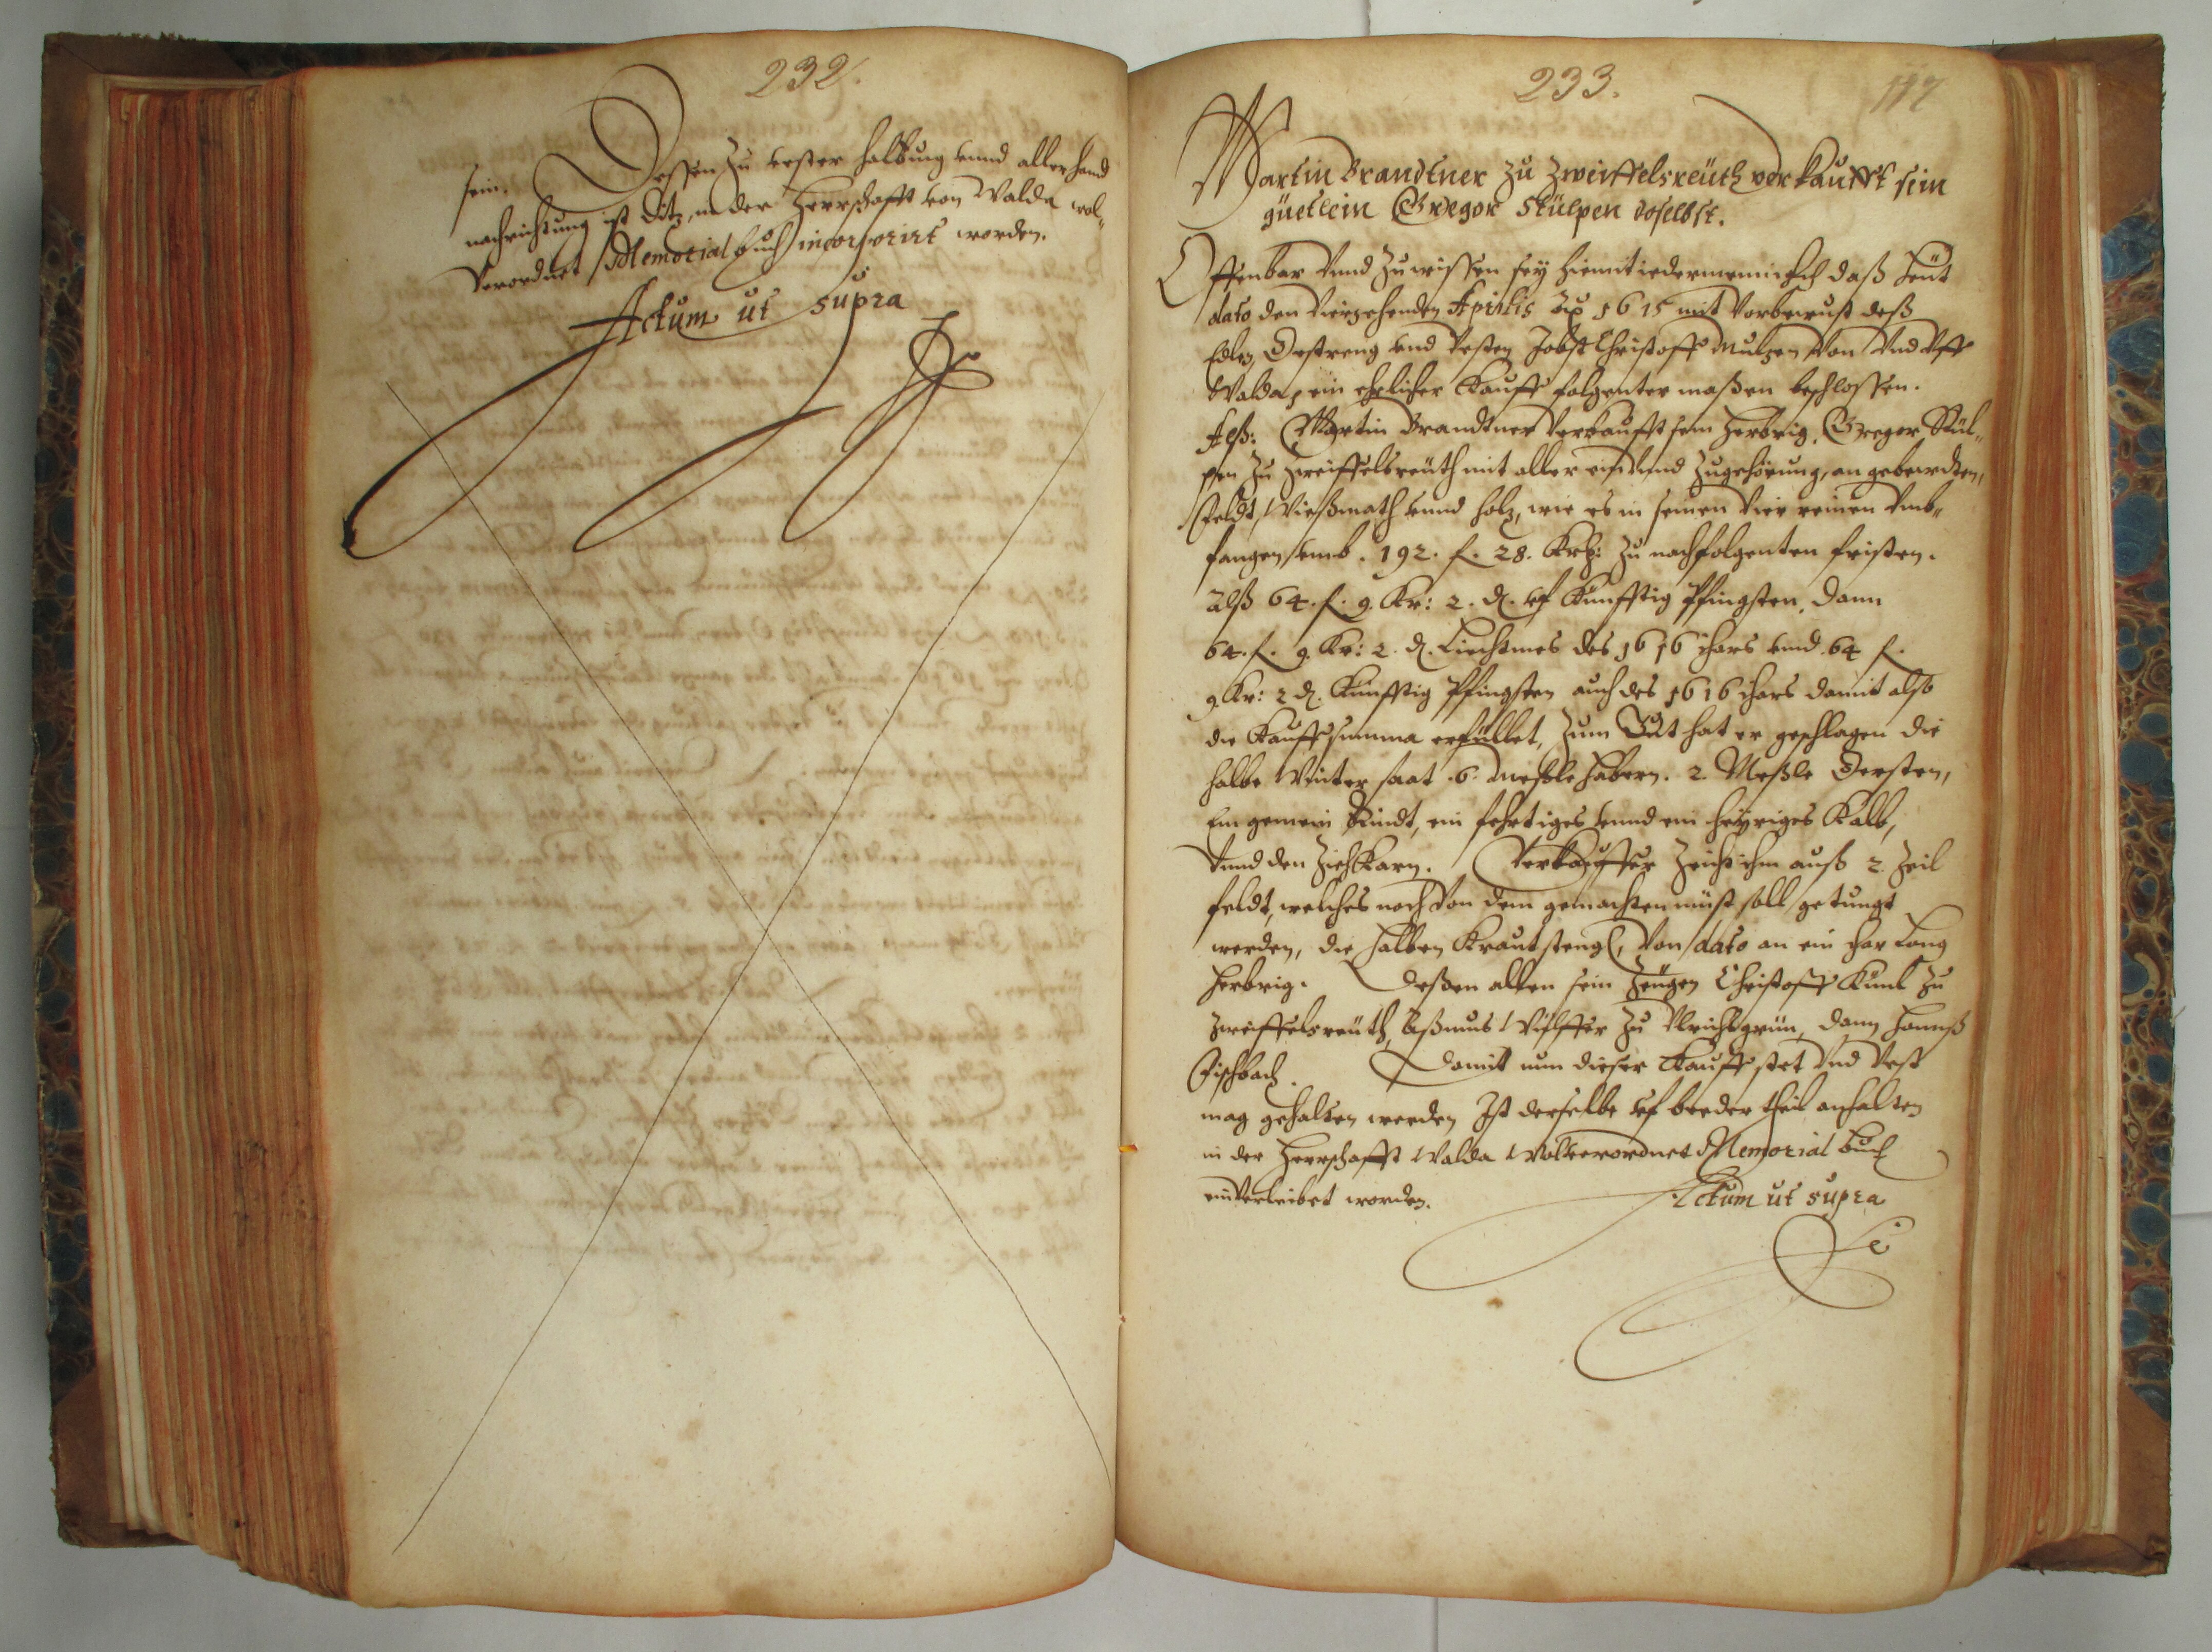 232.
sein. Dessen zu vester haltung vnnd allerhand
nachrichtung ist ditz, in der Herrschafft von Walda wol-
verordnet Memorial buch incorporirt worden.
Actum ut supra
233.
117
Martin Brandtner zu Zweiffelsreüth verkaufft sein
güetlein Gregor Stülpen doselbst.
Offenbar vnnd zuwissen sey hiemit iedermenniglich daß heüt
dato den Vierzehenden Aprilis 1615 mit Vorbewust deß
Edlen, Gestreng vnd Vesten Jobst Christoff Mulzen von vnd vff
Walda, ein ehrlicher Kauff folgenter maßen beschlossen.
Alß: Martin Brandtner verkaufft sein Herbrig, Gregor Stül-
pen zu Zweiffelsreüth mit aller ein vnnd zugehörung, an gebewden,
feldt, Wießmath vnnd holz, wie es in seinen vier reinen vmb-
fangen vmb. 192. f. 28. Krz: zu nachfolgenten fristen.
alß 64. f. 9. Kr: 2. d. vf Kunfftig Pfingsten, dann
64. f. 9. Kr: 2. d. Liechtmes des 1616 ihars vnnd 64 f.
9 Kr: 2 d. Kunfftig Pfingsten auch des 1616 ihars damit also
die Kauffssumma erfüllet, Zum Gut hat er geschlagen die
halbe Winter saat. 6. meßle habern. 2. Meßle Gersten,
Ein gemein Rindt, ein fehrtiges vnnd ein heyriges Kalb,
vnnd den Zieh Karn. Verkauffer Zeicht ihm auß 2. Zeil
feldt, welches noch von dem gemachten müst soll getungt
werden, die halben Krautstengl, von dato an ein ihar lang
Herbrig. Deßen alles sein Zeügen Christoff Küml zu
Zweiffelsreüth, Aßmus Wilffer zu Ulrichsgrün, dann Hannß
Fischbach. Damit nun dieser Kauff stet vnd vest
mag gehalten werden Ist derselbe vf beeder theil anhalten
in der Herrschafft Walda Wolverordnet Memorial buch
einverleibet worden. Actum ut supra